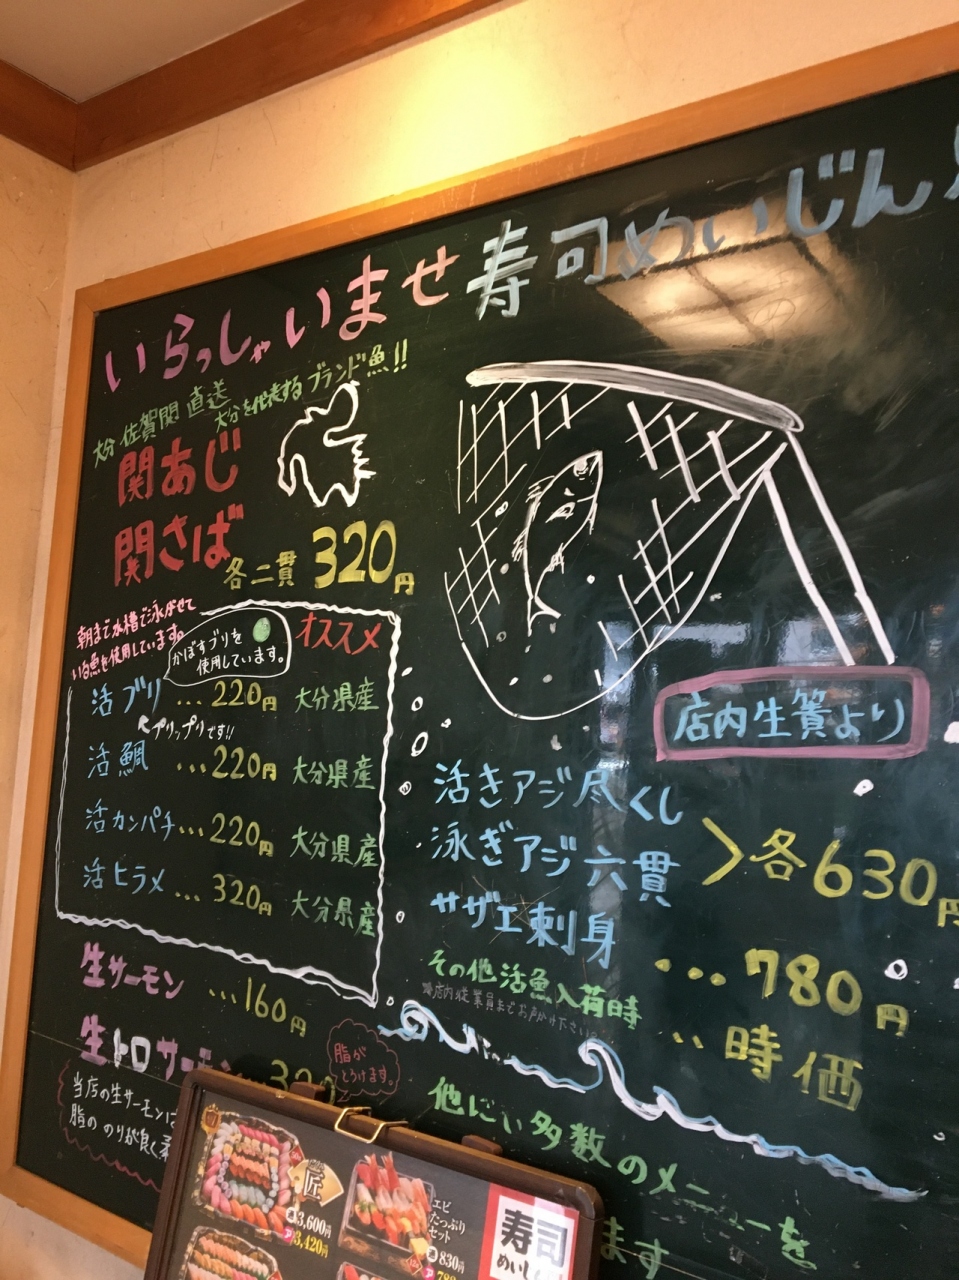 いらっしゃいませ寿司めいじん!
大分 佐賀関 直送
大分を代表するブランド魚!!
関あじ
関さば
各二貫 320円
朝まで水槽で泳がせて
いる魚を使用しています。
かぼすブリを
使用しています。
オススメ
活ブリ ...220円 大分県産
プリップリです!!
活鯛 ...220円 大分県産
活カンパチ...220円 大分県産
活ヒラメ ...320円 大分県産
生サーモン ...160円
生トロサーモン
脂が
とろけます。
当店の生サーモンは
脂の のりが良く
店内生簀より
活きアジ尽くし
泳ぎアジ六貫
>各630円
サザエ刺身 ...780円
その他活魚入荷時 ..時価
店内従業員までお声かけ下さい。
他にい多数のメニューを
ます
匠
3,600円
3,420円
エビ
たっぷり
セット
830円
寿司